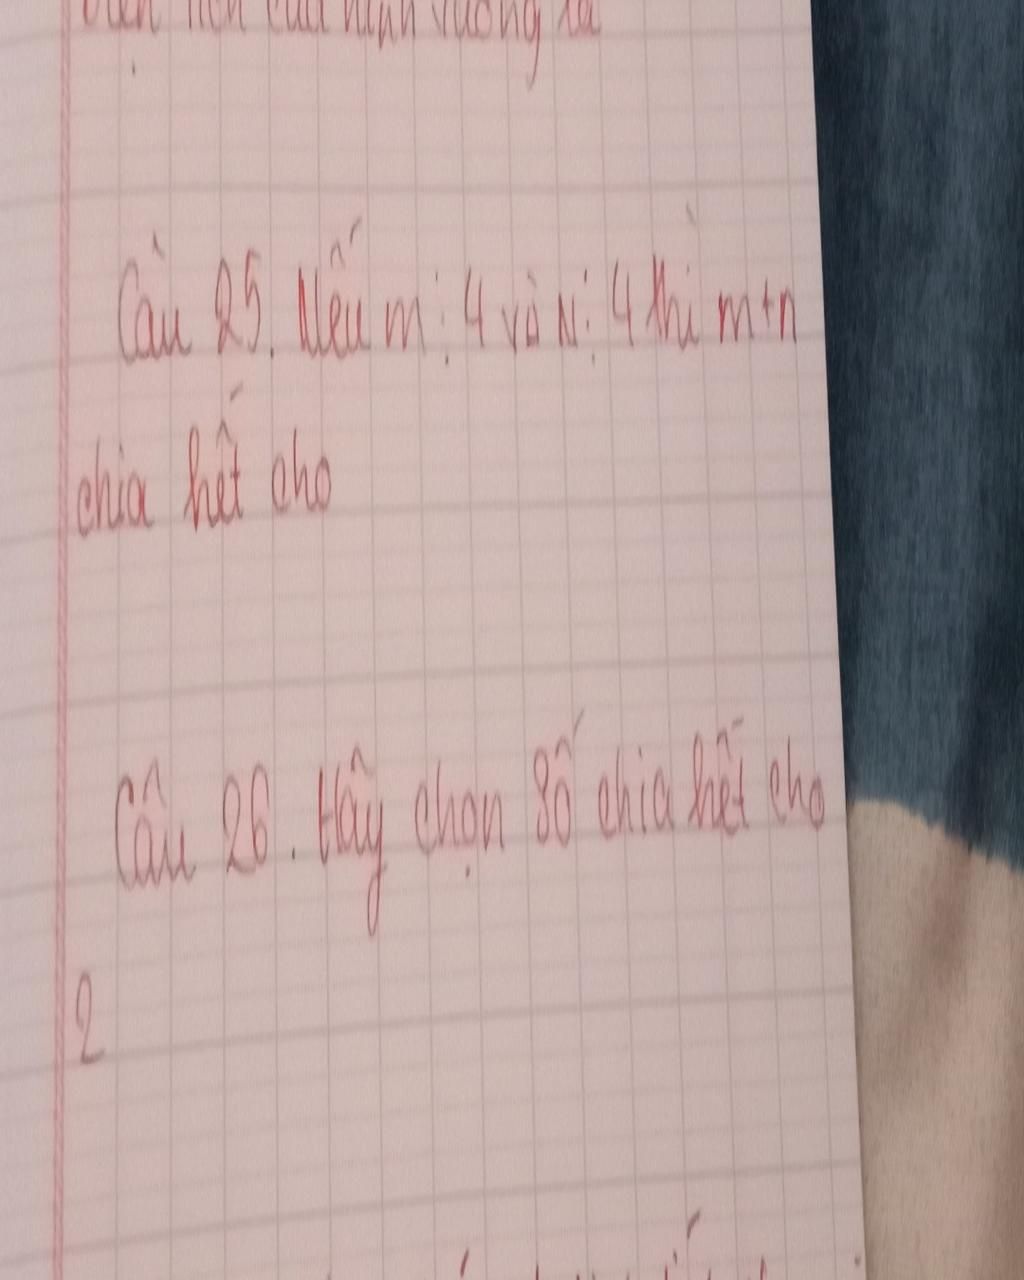 Diện tích của hình vuông là
Câu 25. Nếu m ⋮ 4 và N ⋮ 4 thì m+n
chia hết cho
Câu 26. Hãy chọn số chia hết cho
2